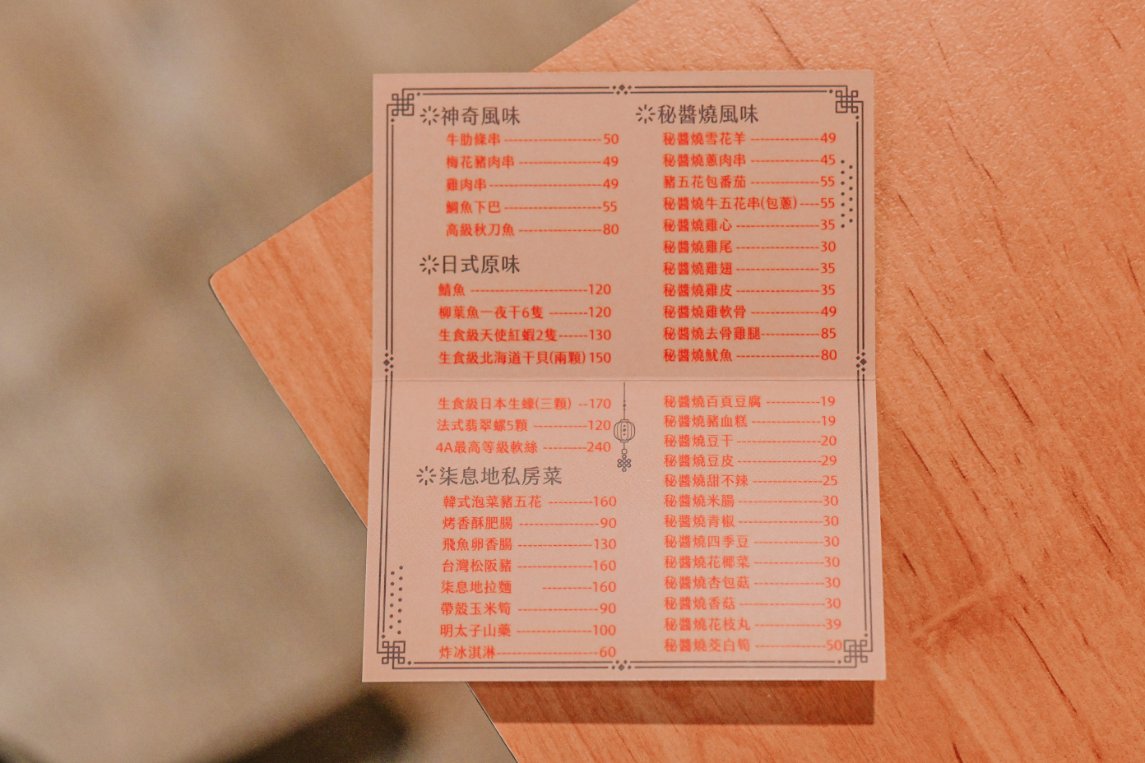 神奇風味
牛肋條串 ---------------------50
梅花豬肉串 ------------------49
雞肉串-------------------------49
鯛魚下巴 ----------------------55
高級秋刀魚 -------------------80
日式原味
鯖魚 --------------------------120
柳葉魚一夜干6隻 --------120
生食級天使紅蝦2隻------130
生食級北海道干貝(兩顆) 150
生食級日本生蠔(三顆) --170
法式翡翠螺5顆 ------------120
4A最高等級軟絲 ----------240
柒息地私房菜
韓式泡菜豬五花 ---------160
烤香酥肥腸 ------------------90
飛魚卵香腸 ----------------130
台灣松阪豬 ----------------160
柒息地拉麵 -----------160
帶殼玉米筍 ------------------90
明太子山藥 ----------------100
炸冰淇淋----------------------60
秘醬燒風味
秘醬燒雪花羊 ---------------49
秘醬燒蔥肉串 ---------------45
豬五花包番茄 ---------------55
秘醬燒牛五花串(包蔥) ----55
秘醬燒雞心 ------------------35
秘醬燒雞尾 ------------------30
秘醬燒雞翅 ------------------35
秘醬燒雞皮 ------------------35
秘醬燒雞軟骨 ---------------49
秘醬燒去骨雞腿-------------85
秘醬燒魷魚 ------------------80
秘醬燒百頁豆腐 ------------19
秘醬燒豬血糕 ---------------19
秘醬燒豆干 ------------------20
秘醬燒豆皮 ------------------29
秘醬燒甜不辣 ---------------25
秘醬燒米腸 ------------------30
秘醬燒青椒 ------------------30
秘醬燒四季豆 ---------------30
秘醬燒花椰菜 ---------------30
秘醬燒杏包菇 ---------------30
秘醬燒香菇 ------------------30
秘醬燒花枝丸 ---------------39
秘醬燒茭白筍 ---------------50